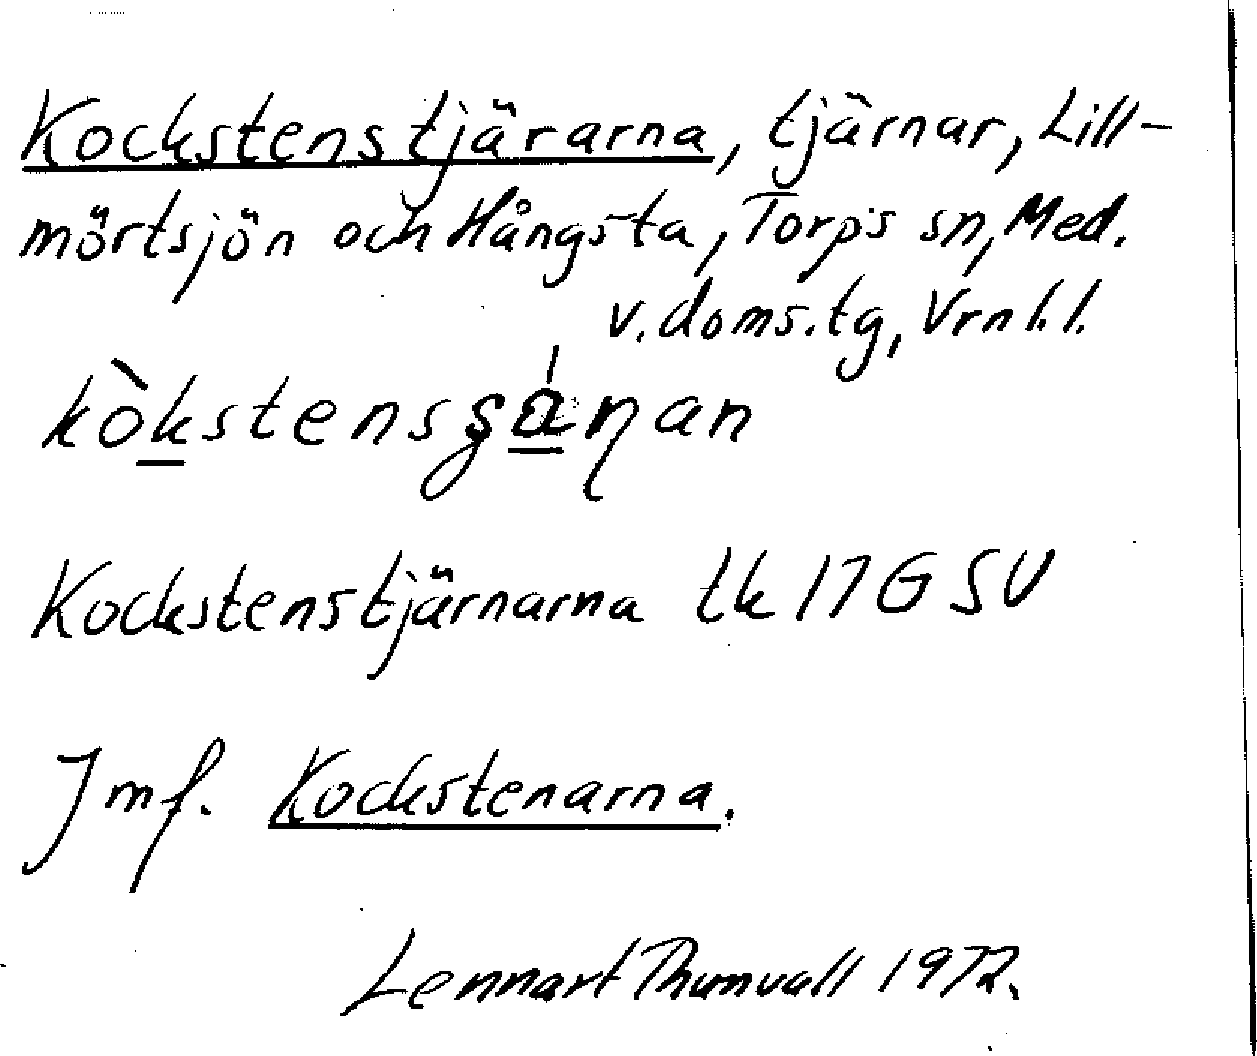 Kockstenstjärarna, tjärnar, Lill-
mörtsjön och Hångsta, Torps sn, Med.
v. doms.tg, Vrnl. l.
kòk̲stensʂá̲ɳan
Kockstenstjärnarna tk 17G SV
Jmf. Kockstenarna.
Lennart Thunvall 1972.